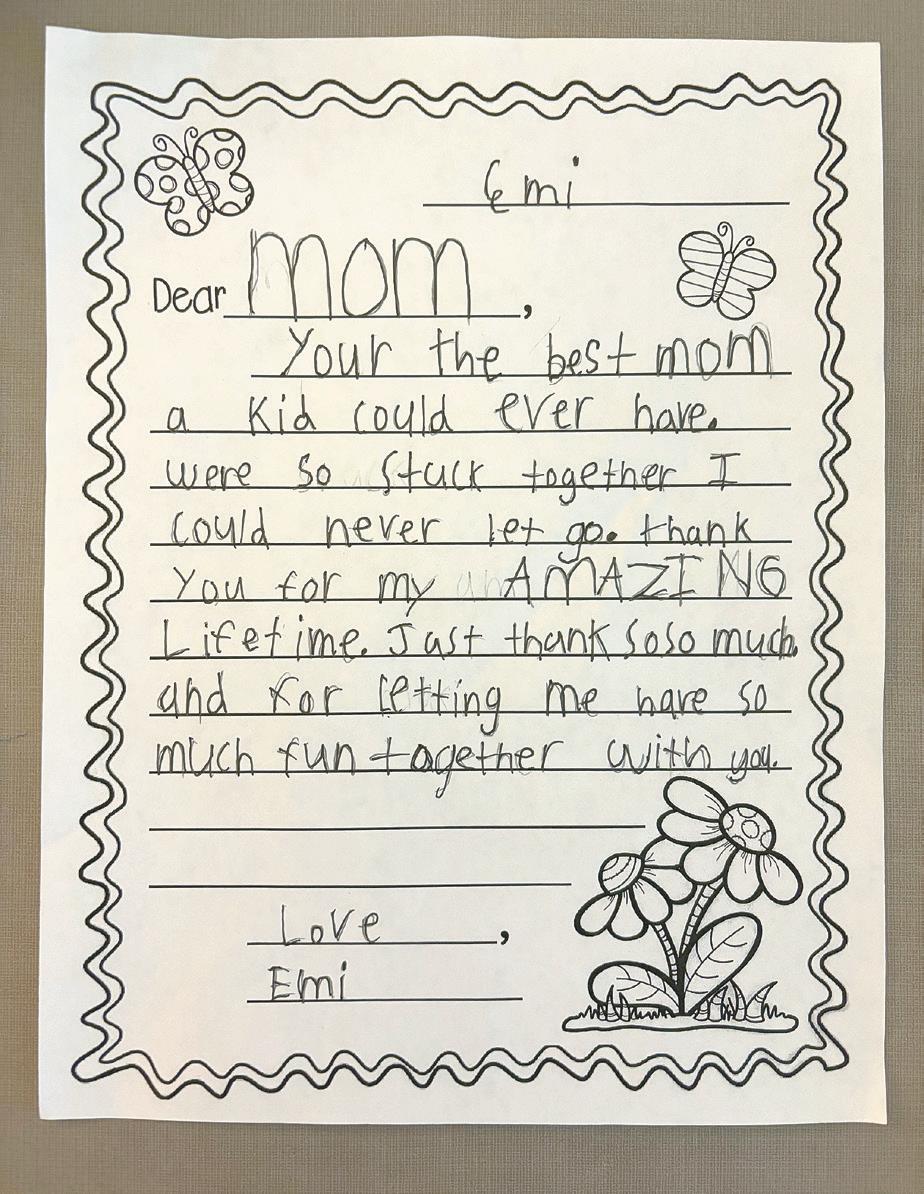 Emi
Dear Mom,
Your the best mom
a kid could ever have.
were so stuck together I
could never let go. thank
you for my AMAZING
Lifetime. Just thank soso much.
and for letting me have so
much fun together with you.
Love,
Emi